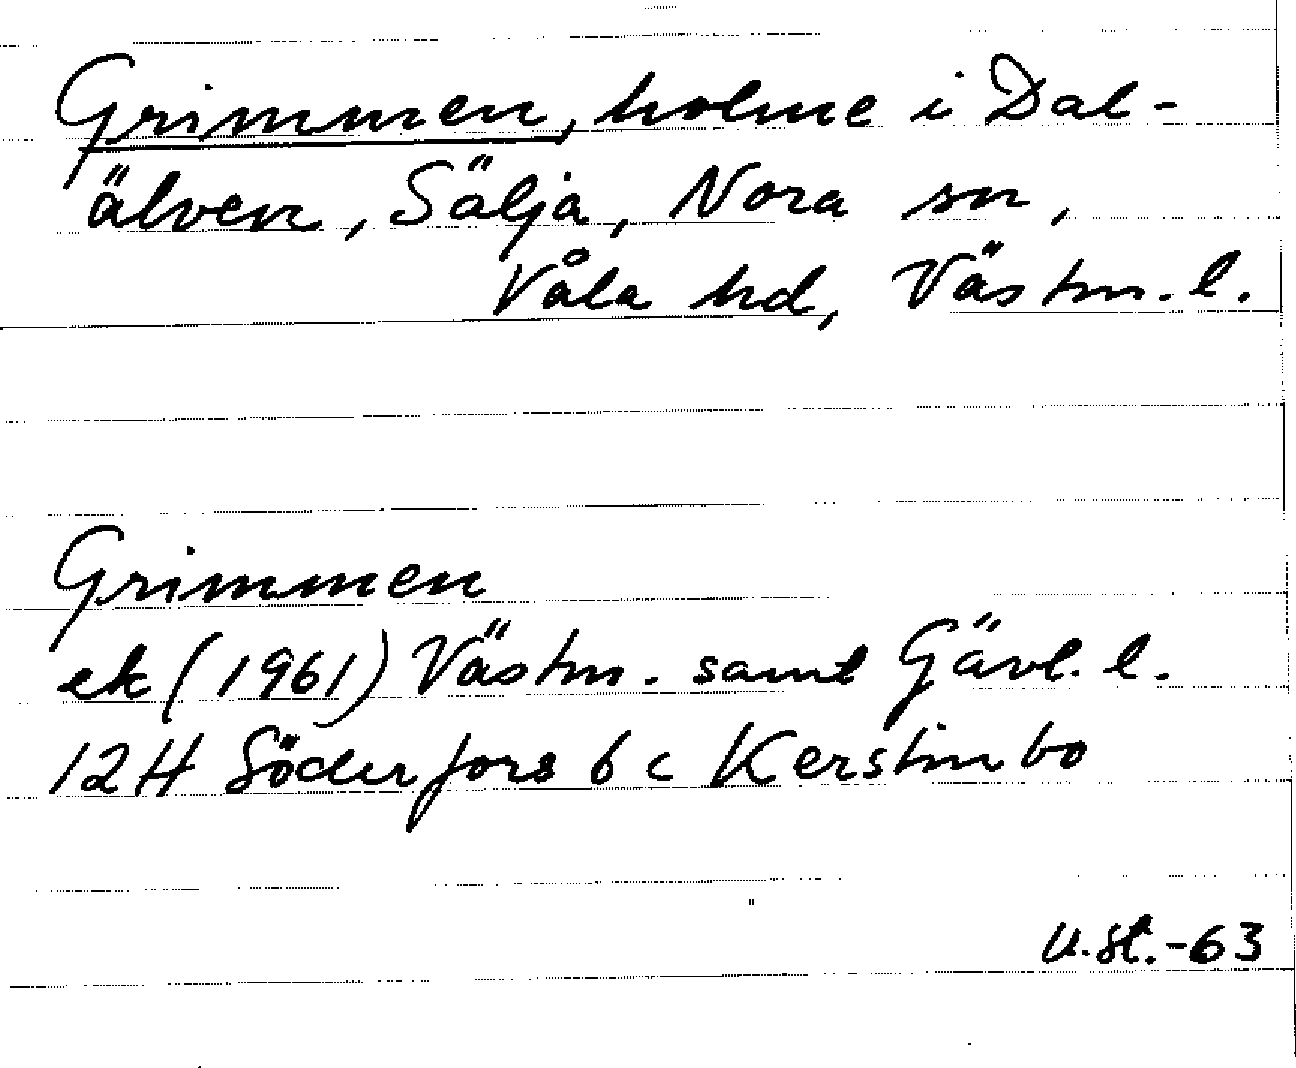 Grimmen, holme i Dal-
älven, Sälja, Nora sn,
Våla hd, Västm. l.
Grimmen
ek (1961) Västm. samt Gävl. l.
12H Söderfors 6 c Kerstinbo
U.St.-63